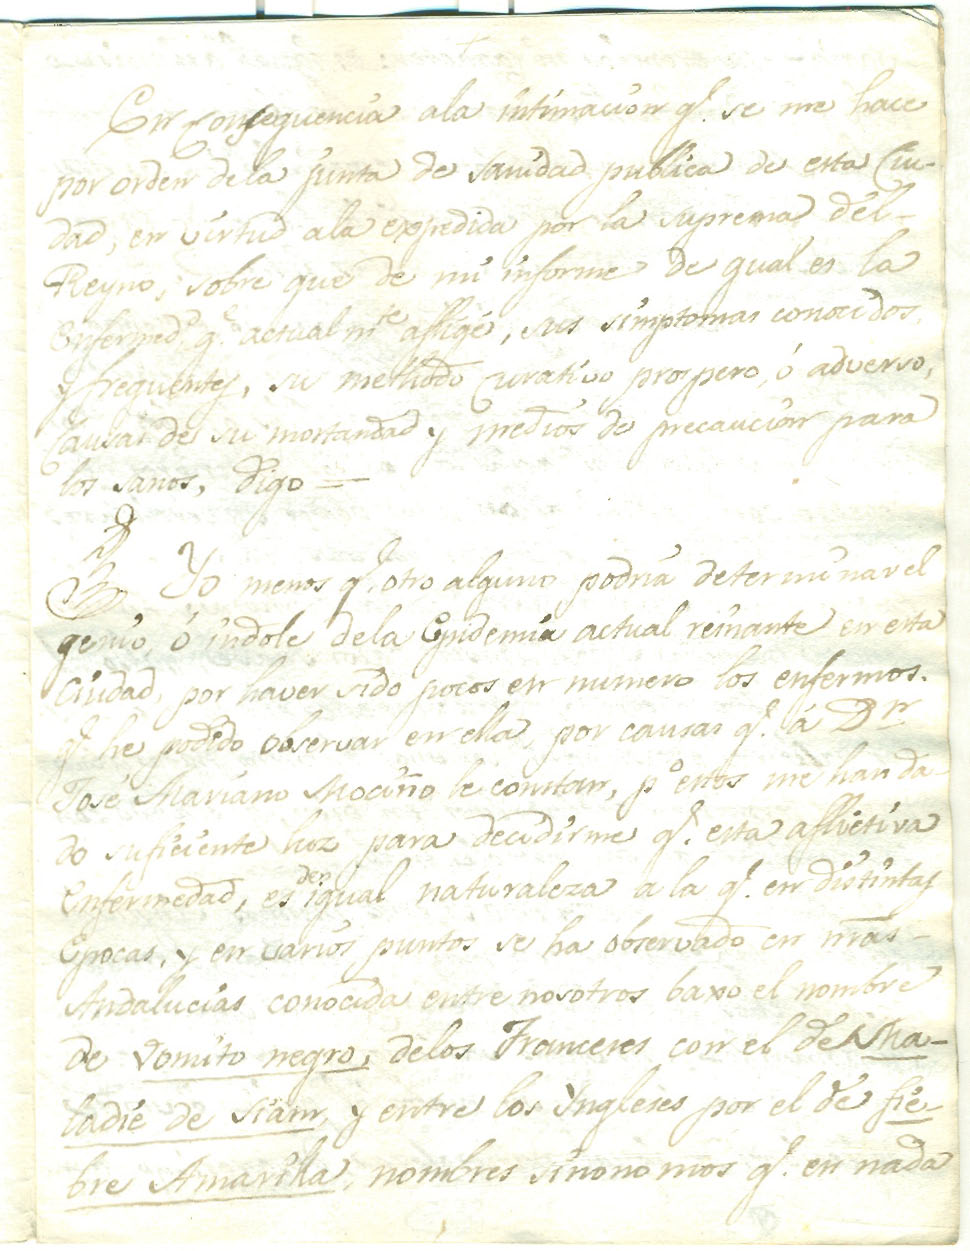 En consequencia ala intimacion q.e se me hace
por orden dela Junta de Sanidad publica de esta Ciu-
dad, en virtud ala expedida por la Suprema del-
Reyno, sobre que de mi informe de qual es la
Enfermed.d q.e actualm.te aflige, sus simptomas conocidos,
y frequentes, su methodo curativo prospero, ó adverso,
causas de su mortandad y medios de precaucion para
los sanos, digo =
Yo menos q.e otro alguno podria determinar el
genio, ó indole dela Epidemia actual reinante en esta
Ciudad, por haver sido pocos en numero los enfermos.
q.e he podido observar en ella, por causas q.e á D.n
José Mariano Mociño le constan, p.o estos me han da-
do suficiente luz para decidirme q.e esta aflictiva
Enfermedad, es de igual naturaleza a la q.e en distintas
Epocas, y en varios puntos se ha observado en nras-
Andalucias conocida entre nosotros baxo el nombre
de vomito negro, delos Franceses con el de Ma-
ladie de Siam, y entre los Yngleses por el de fie-
bre Amarilla, nombres sinonomos q.e en nada